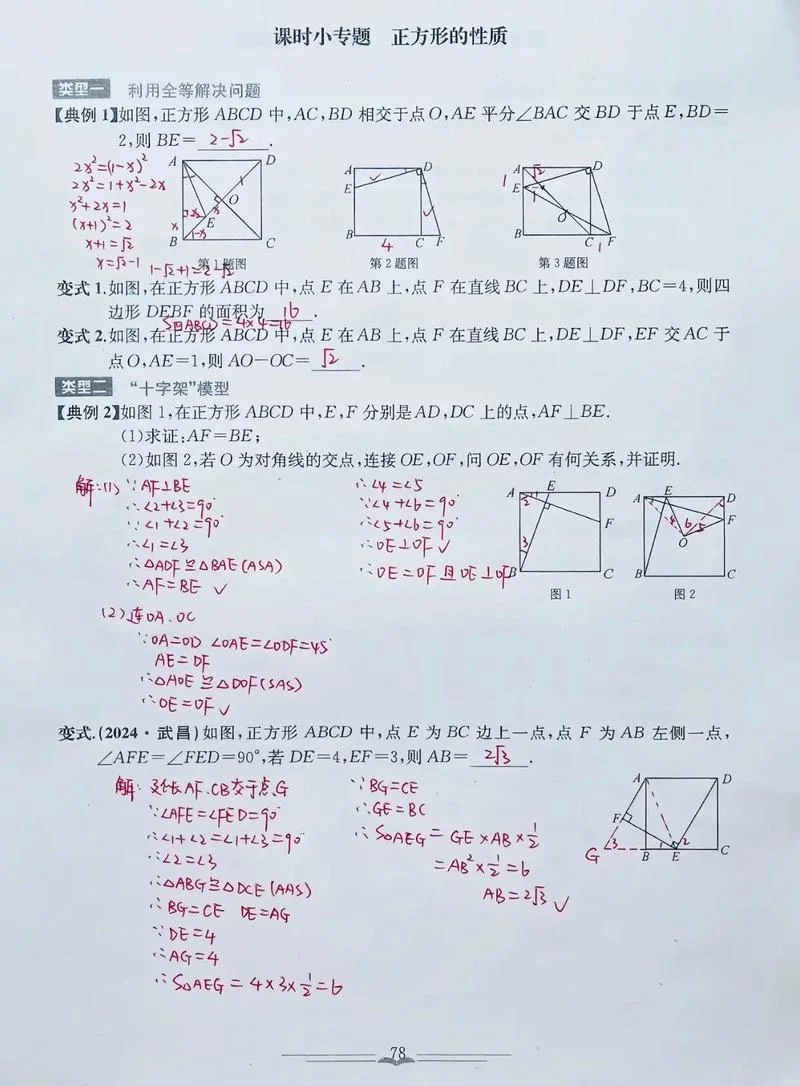 课时小专题 正方形的性质
类型一 利用全等解决问题
【典例1】如图,正方形ABCD中,AC,BD相交于点O,AE平分∠BAC交BD于点E,BD=
2,则BE= 2-√2 .
2x²=(1-x)²
2x²=1+x²-2x
x²+2x=1
(x+1)²=2
x+1=√2
x=√2-1
1-√2+1=2-√2
A D O E B C x 1-x
第1题图
A D E B 4 C F
第2题图
A √2 D 1 E 1 O B C 1 F
第3题图
变式1.如图,在正方形ABCD中,点E在AB上,点F在直线BC上,DE⊥DF,BC=4,则四
边形DEBF的面积为 16 .
S□ABCD=4×4=16
变式2.如图,在正方形ABCD中,点E在AB上,点F在直线BC上,DE⊥DF,EF交AC于
点O,AE=1,则AO-OC= √2 .
类型二 “十字架”模型
【典例2】如图1,在正方形ABCD中,E,F分别是AD,DC上的点,AF⊥BE.
(1)求证:AF=BE;
(2)如图2,若O为对角线的交点,连接OE,OF,问OE,OF有何关系,并证明.
解:(1) ∵AF⊥BE
∴∠2+∠3=90°
∵∠1+∠2=90°
∴∠1=∠3
∴△ADF≌△BAE(ASA)
∴AF=BE ✓
(2)连OA.OC
∵OA=OD ∠OAE=∠ODF=45°
AE=DF
∴△AOE≌△DOF(SAS)
∴OE=OF ✓
∴∠4=∠5
∵∠4+∠6=90°
∴∠5+∠6=90°
∴OE⊥OF ✓
∴OE=OF且OE⊥OF
A E D 2 1 F 3 B C
图1
A E D F 4 6 5 O B C
图2
变式.(2024·武昌)如图,正方形ABCD中,点E为BC边上一点,点F为AB左侧一点,
∠AFE=∠FED=90°,若DE=4,EF=3,则AB= 2√3 .
解:延长AF.CB交于点G
∵∠AFE=∠FED=90°
∴∠1+∠2=∠1+∠3=90°
∴∠2=∠3
∴△ABG≌△DCE(AAS)
∴BG=CE DE=AG
∵DE=4
∴AG=4
∴S△AEG=4×3×1/2=6
∵BG=CE
∴GE=BC
∴S△AEG=GE×AB×1/2
=AB²×1/2=6
AB=2√3 ✓
A D F G 3 B 1 E 2 C
78